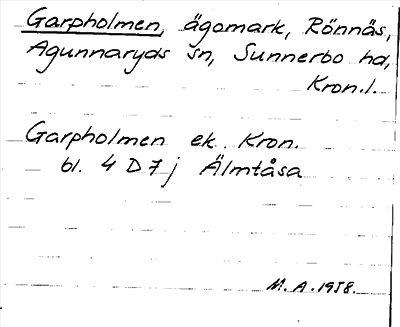 Garpholmen, ägomark, Rönnäs,
Agunnaryds sn, Sunnerbo hd,
Kron.l.
Garpholmen ek. Kron.
bl. 4 D 7 j Älmtåsa
M. A. 1958.